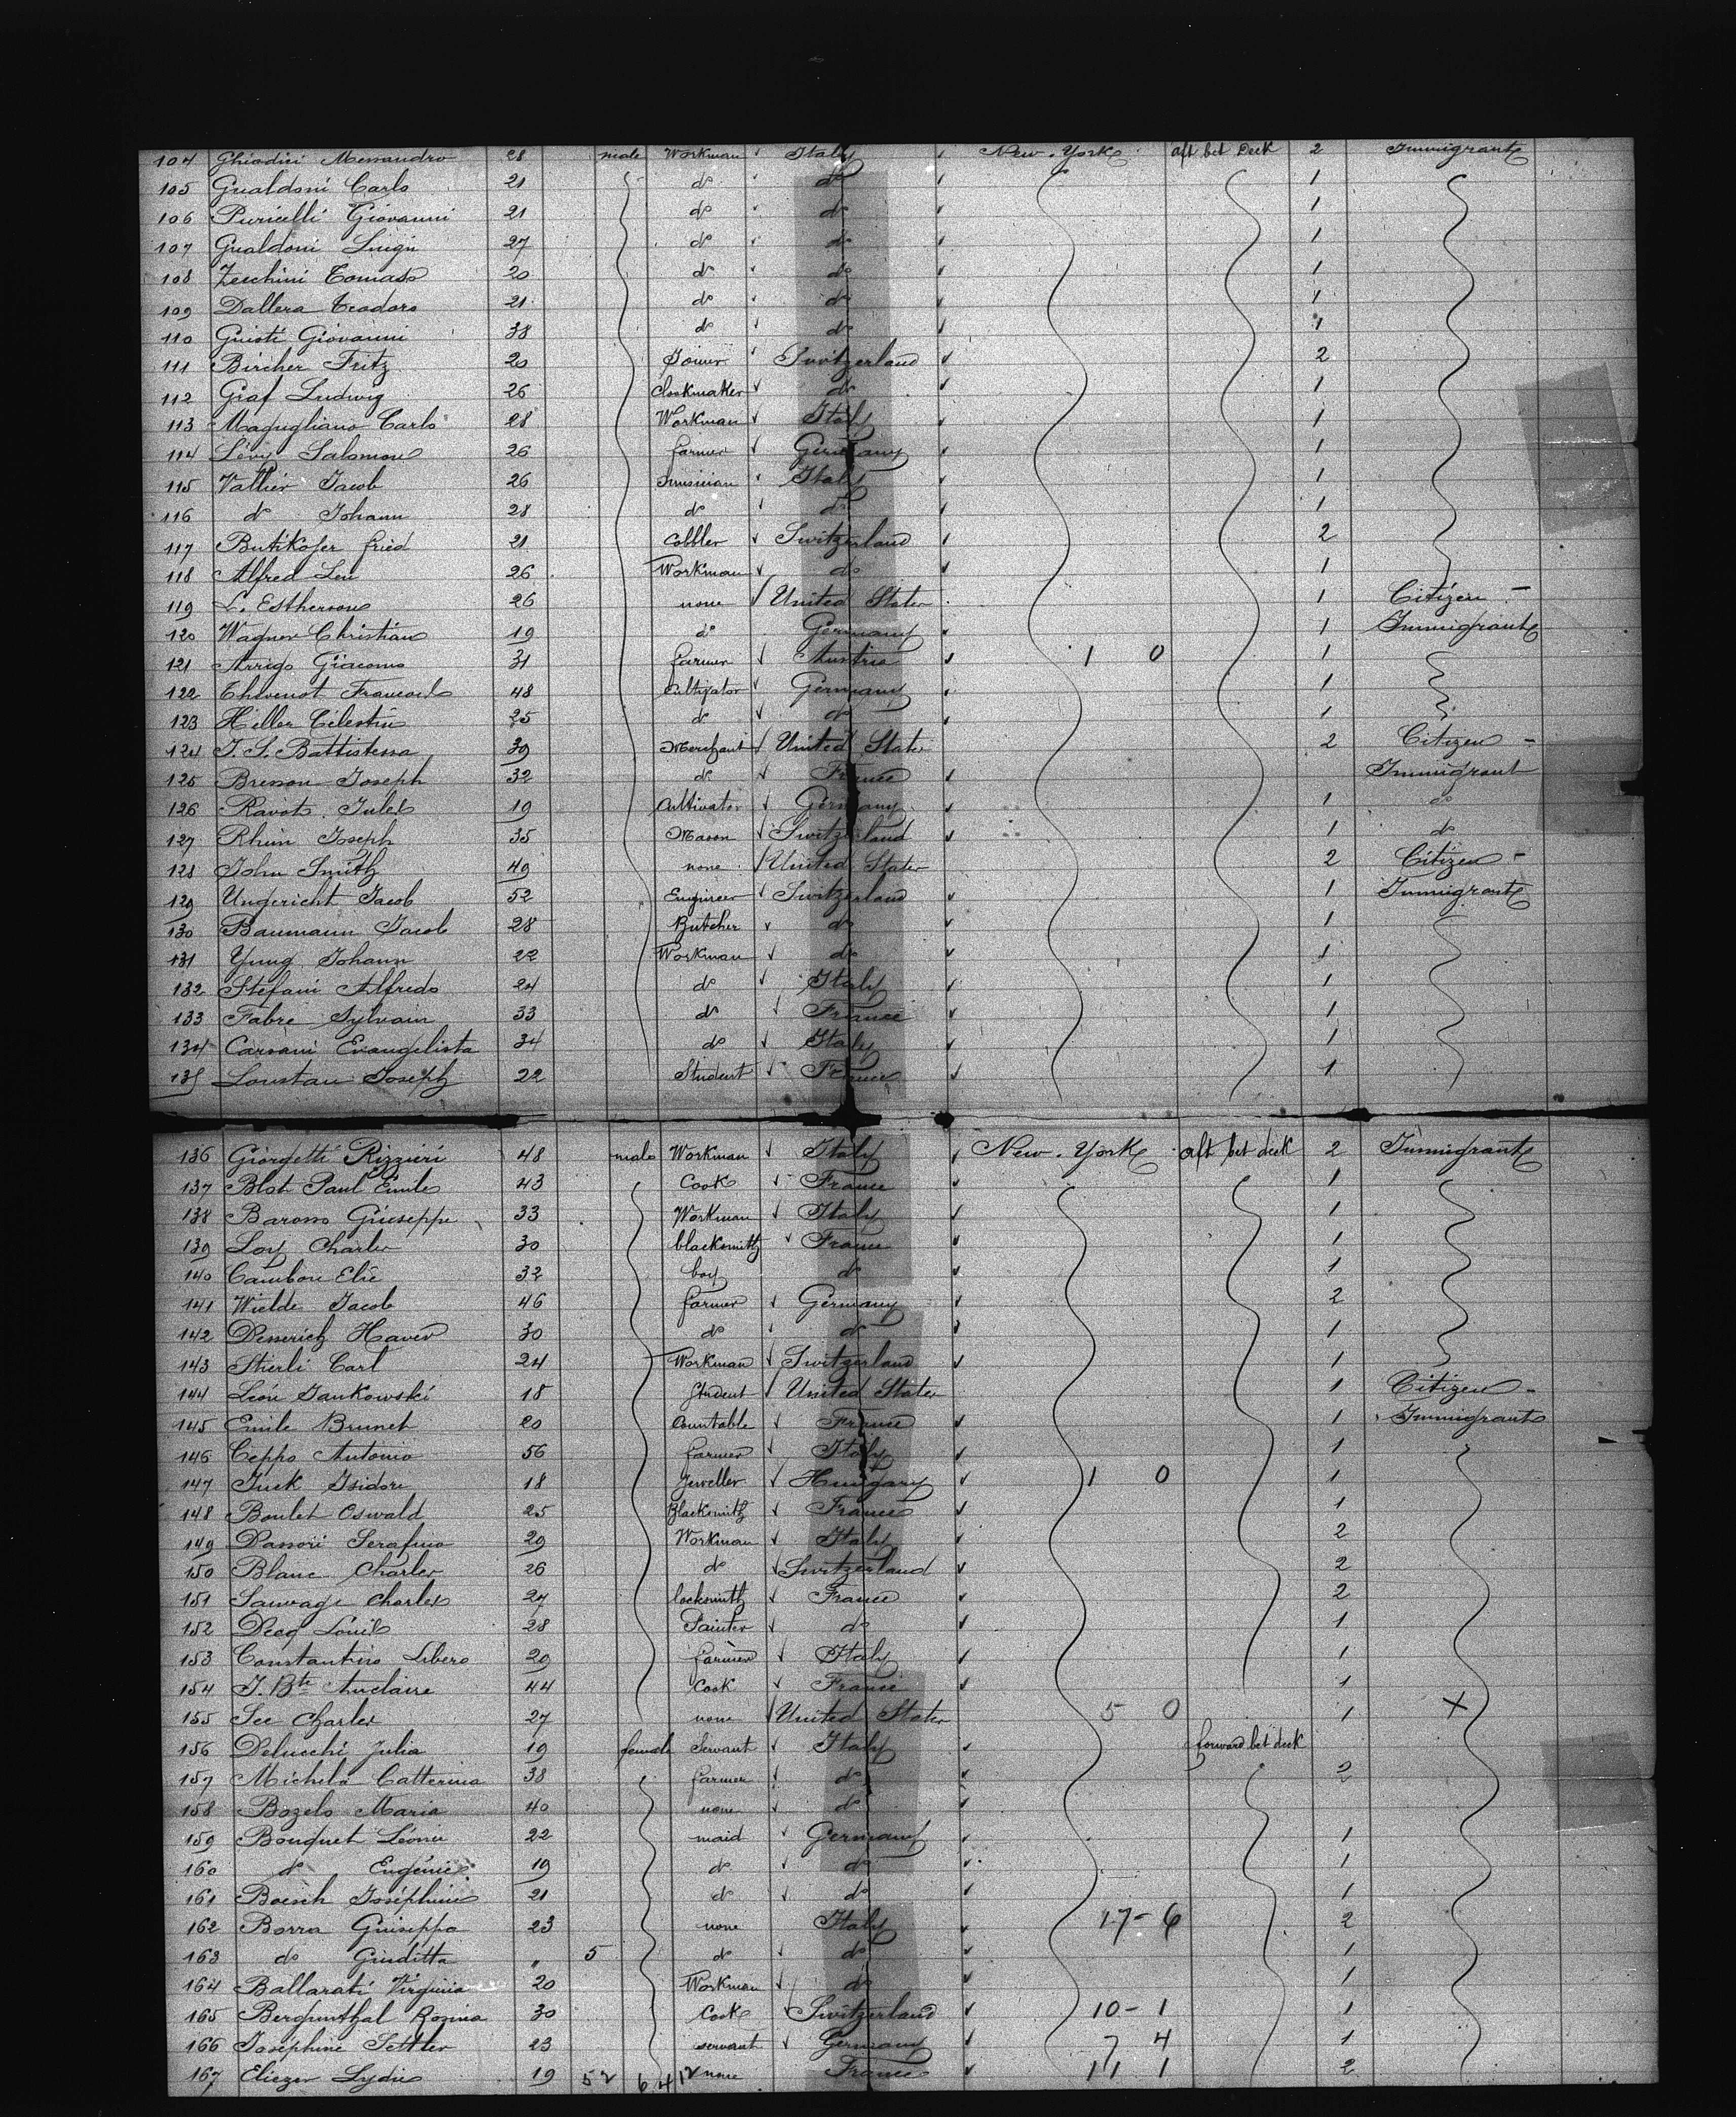 104 Ghiodini Alessandro 28 male Workman Italy New-York aft bet Deck 2 Immigrant
105 Gualdoni Carlo 21 do do 1
106 Puricelli Giovanni 21 do do 1
107 Gualdoni Luigi 27 do do 1
108 Zecchini Tomaso 20 do do 1
109 Dallera Teodoro 21 do do 1
110 Giusti Giovanni 38 do do 1
111 Bircher Fritz 20 Joiner Switzerland 2
112 Graf Ludwig 26 Clockmaker do 1
113 Magugliano Carlo 28 Workman Italy 1
114 Lévy Salomon 26 farmer Germany 1
115 Vallier Jacob 26 musician Italy 1
116 do Johann 28 do do 1
117 Butikofer fried 21 Cobbler Switzerland 2
118 Alfred Leu 26 Workman do 1
119 L. Estherson 26 none United States 1 Citizen -
120 Wagner Christian 19 do Germany 1 Immigrant
121 Arrigo Giacomo 31 farmer Austria 1 0 1
122 Thevenot Francois 48 Cultivator Germany 1
123 Hiller Célestin 25 do do 1
124 J. S. Battistessa 39 Merchant United States 2 Citizen -
125 Bresson Joseph 32 do France Immigrant
126 Ravot Jules 19 Cultivator Germany 1 do
127 Rhein Joseph 35 Mason Switzerland 1 do
128 John Smith 49 none United States 2 Citizen -
129 Ungericht Jacob 52 Engineer Switzerland 1 Immigrant
130 Baumann Jacob 28 Butcher do 1
131 Yung Johann 22 Workman do 1
132 Stefani Alfredo 24 do Italy 1
133 Fabre Sylvain 33 do France 1
134 Carsani Evangelista 34 do Italy 1
135 Loustau Joseph 22 Student France 1
136 Giorgetti Rizzieri 48 male Workman Italy New-York aft bet deck 2 Immigrant
137 Blot Paul Emile 43 Cook France 1
138 Barosso Giuseppe 33 Workman Italy 1
139 Loy Charles 30 blacksmith France 1
140 Cambon Elie 32 boy do 1
141 Wielde Jacob 46 farmer Germany 2
142 Desserich Haver 30 do do 1
143 Stierli Carl 24 Workman Switzerland 1
144 Léon Jankowski 18 Student United States 1 Citizen -
145 Emile Brunet 20 Countable France 1 Immigrant
146 Ceppo Antonio 56 farmer Italy 1
147 Tuck Isidore 18 Jeweller Hungary 1 0 1
148 Boulet Oswald 25 Blacksmith France 1
149 Dassori Serafino 29 Workman Italy 2
150 Blanc Charles 26 do Switzerland 2
151 Sauvage Charles 27 locksmith France 2
152 Decq Louis 28 Painter do 1
153 Constantino Libero 29 farmer Italy 1
154 J. Bte Auclaire 44 Cook France 1
155 See Charles 27 none United States 5 0 1 X
156 Delucchi Julia 19 female Servant Italy forward bet deck
157 Michela Catterina 38 farmer do 2
158 Bozelo Maria 40 none do
159 Bouquet Léonie 22 maid Germany 1
160 do Eugénie 19 do do 1
161 Boesch Joséphine 21 do do 1
162 Borra Guiseppa 23 none Italy 17-6 2
163 do Giuditta " 5 do do 1
164 Ballarati Virginia 20 Workman do 1
165 Bergunthal Rosina 30 Cook Switzerland 10-1 1
166 Joséphine Settler 23 servant Germany 7 4 1
167 Eliezer Lydie 19 52 64 12 none France 11 1 2